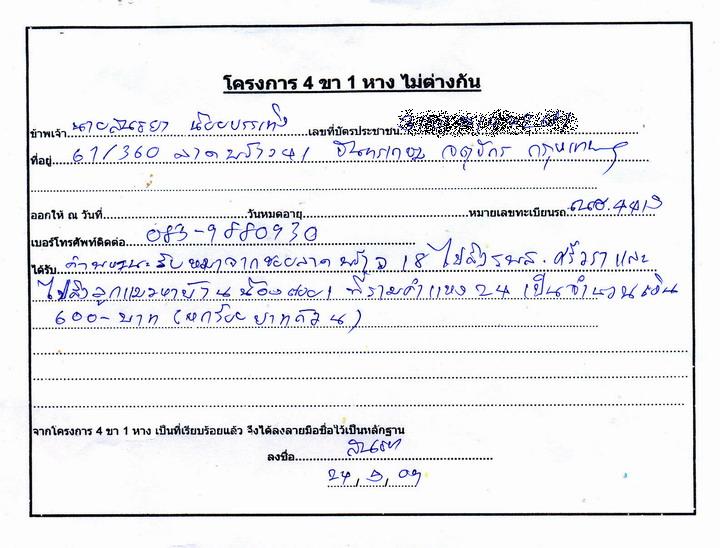 โครงการ 4 ขา 1 หาง ไม่ต่างกัน
ข้าพเจ้า นายสนธยา น้อยบรรเทิง เลขที่บัตรประชาชน
ที่อยู่ 61/360 ลาดพร้าว 41 จันทรเกษม จตุจักร กรุงเทพฯ
ออกให้ ณ วันที่ วันหมดอายุ หมายเลขทะเบียนรถ 4413
เบอร์โทรศัพท์ติดต่อ 083-9880930
ได้รับ ค่าพาหนะรับหมาจากซอยลาดพร้าว 18 ไปส่งรพส. ศรีวรา และ
ไปส่งลูกแมวหาบ้าน น้อง ที่รามคำแหง 24 เป็นจำนวนเงิน
600- บาท (หกร้อยบาทถ้วน)
จากโครงการ 4 ขา 1 หาง เป็นที่เรียบร้อยแล้ว จึงได้ลงลายมือชื่อไว้เป็นหลักฐาน
ลงชื่อ สนธยา